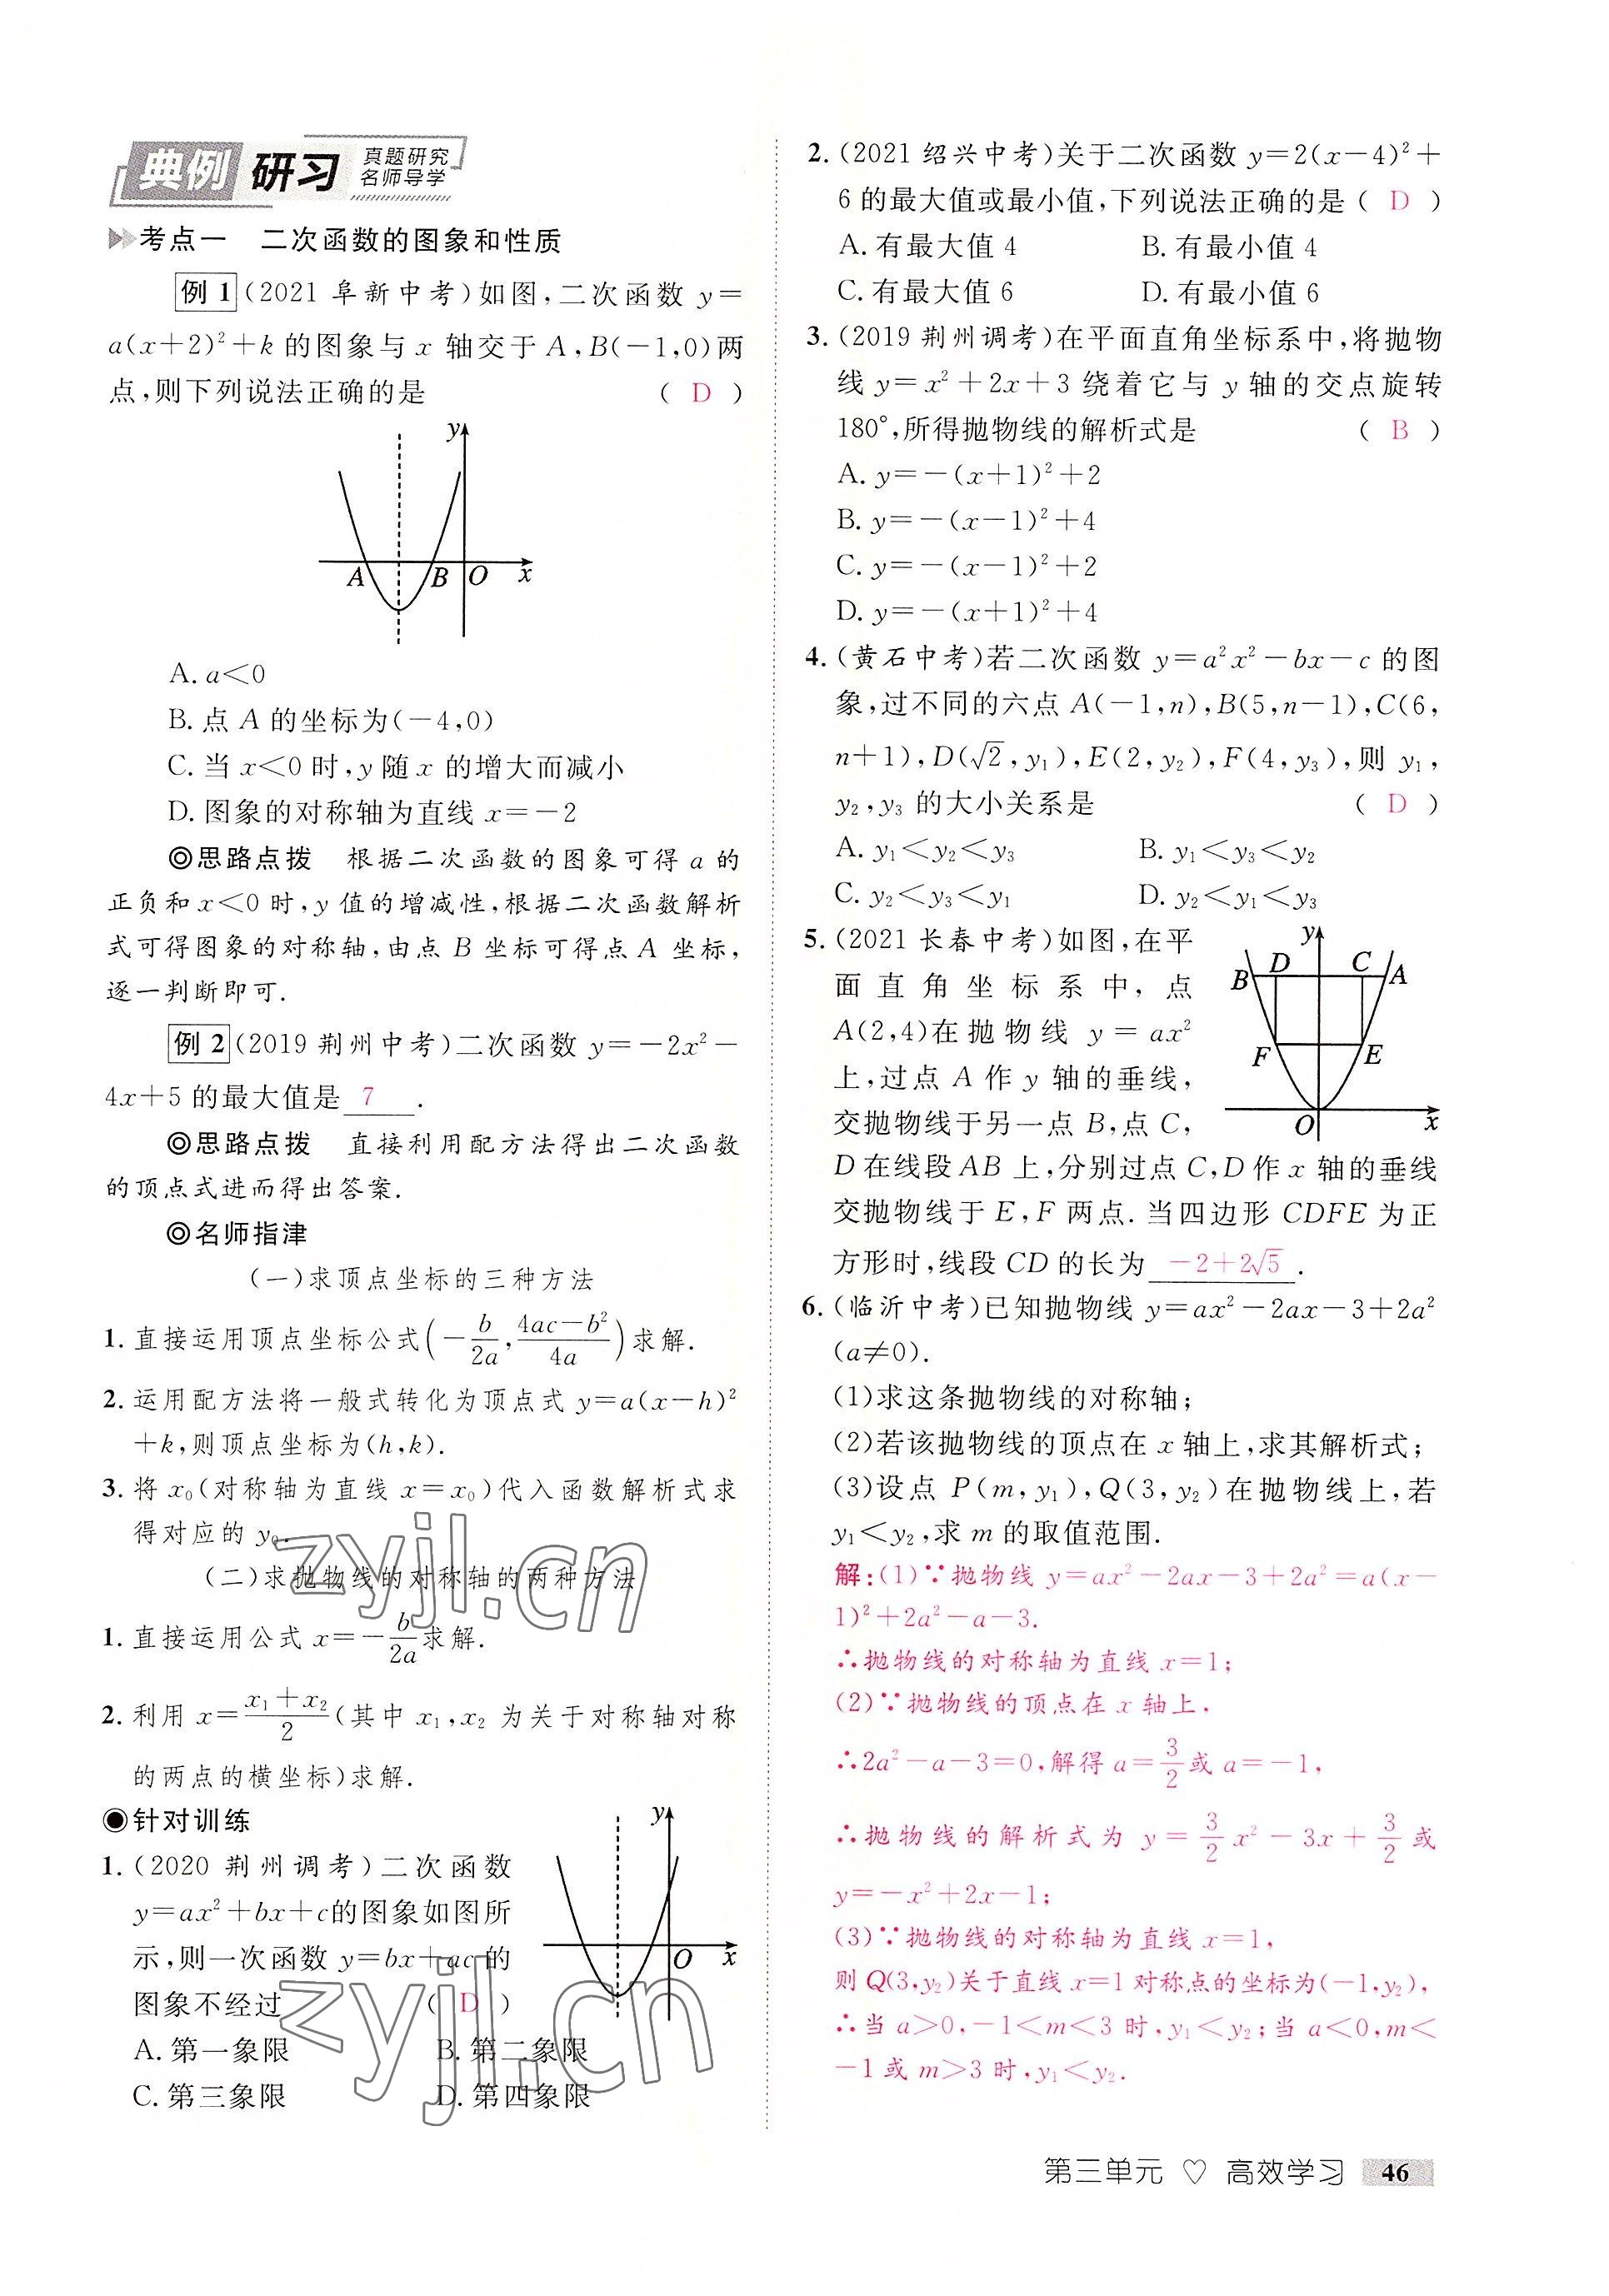 典例 研习 真题研究
名师导学
考点一 二次函数的图象和性质
例1 (2021 阜新中考)如图,二次函数 y=
a(x+2)²+k 的图象与 x 轴交于 A,B(-1,0)两
点,则下列说法正确的是 ( D )
y
A B O x
A. a<0
B. 点 A 的坐标为(-4,0)
C. 当 x<0 时,y 随 x 的增大而减小
D. 图象的对称轴为直线 x=-2
◎思路点拨 根据二次函数的图象可得 a 的
正负和 x<0 时,y 值的增减性,根据二次函数解析
式可得图象的对称轴,由点 B 坐标可得点 A 坐标,
逐一判断即可.
例2 (2019 荆州中考)二次函数 y=-2x²-
4x+5 的最大值是 7 .
◎思路点拨 直接利用配方法得出二次函数
的顶点式进而得出答案.
◎名师指津
(一)求顶点坐标的三种方法
1. 直接运用顶点坐标公式(-b/2a,(4ac-b²)/4a)求解.
2. 运用配方法将一般式转化为顶点式 y=a(x-h)²
+k,则顶点坐标为(h,k).
3. 将 x₀(对称轴为直线 x=x₀)代入函数解析式求
得对应的 y₀.
(二)求抛物线的对称轴的两种方法
1. 直接运用公式 x=-b/2a求解.
2. 利用 x=(x₁+x₂)/2(其中 x₁,x₂ 为关于对称轴对称
的两点的横坐标)求解.
◉针对训练
1. (2020 荆州调考)二次函数
y=ax²+bx+c的图象如图所
示,则一次函数 y=bx+ac 的
图象不经过 ( D )
y
O x
A. 第一象限 B. 第二象限
C. 第三象限 D. 第四象限
2. (2021 绍兴中考)关于二次函数 y=2(x-4)²+
6 的最大值或最小值,下列说法正确的是 ( D )
A. 有最大值 4 B. 有最小值 4
C. 有最大值 6 D. 有最小值 6
3. (2019 荆州调考)在平面直角坐标系中,将抛物
线 y=x²+2x+3 绕着它与 y 轴的交点旋转
180°,所得抛物线的解析式是 ( B )
A. y=-(x+1)²+2
B. y=-(x-1)²+4
C. y=-(x-1)²+2
D. y=-(x+1)²+4
4. (黄石中考)若二次函数 y=a²x²-bx-c 的图
象,过不同的六点 A(-1,n),B(5,n-1),C(6,
n+1),D(√2,y₁),E(2,y₂),F(4,y₃),则 y₁,
y₂,y₃ 的大小关系是 ( D )
A. y₁<y₂<y₃ B. y₁<y₃<y₂
C. y₂<y₃<y₁ D. y₂<y₁<y₃
5. (2021 长春中考)如图,在平
面直角坐标系中,点
A(2,4)在抛物线 y=ax²
上,过点 A 作 y 轴的垂线,
交抛物线于另一点 B,点 C,
D 在线段 AB 上,分别过点 C,D 作 x 轴的垂线
交抛物线于 E,F 两点. 当四边形 CDFE 为正
方形时,线段 CD 的长为 -2+2√5 .
y
B D C A
F E
O x
6. (临沂中考)已知抛物线 y=ax²-2ax-3+2a²
(a≠0).
(1)求这条抛物线的对称轴;
(2)若该抛物线的顶点在 x 轴上,求其解析式;
(3)设点 P(m,y₁),Q(3,y₂)在抛物线上,若
y₁<y₂,求 m 的取值范围.
解:(1)∵抛物线 y=ax²-2ax-3+2a²=a(x-
1)²+2a²-a-3.
∴抛物线的对称轴为直线 x=1;
(2)∵抛物线的顶点在 x 轴上.
∴2a²-a-3=0,解得 a=3/2或 a=-1,
∴抛物线的解析式为 y=3/2x²-3x+3/2或
y=-x²+2x-1;
(3)∵抛物线的对称轴为直线 x=1,
则 Q(3,y₂)关于直线 x=1 对称点的坐标为(-1,y₂),
∴当 a>0,-1<m<3 时,y₁<y₂;当 a<0,m<
-1 或 m>3 时,y₁<y₂.
zyjl.cn
zyjl.cn
第三单元 ♡ 高效学习 46